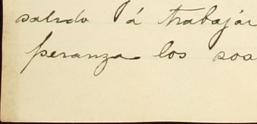 salido á trabajár
peranza los soa